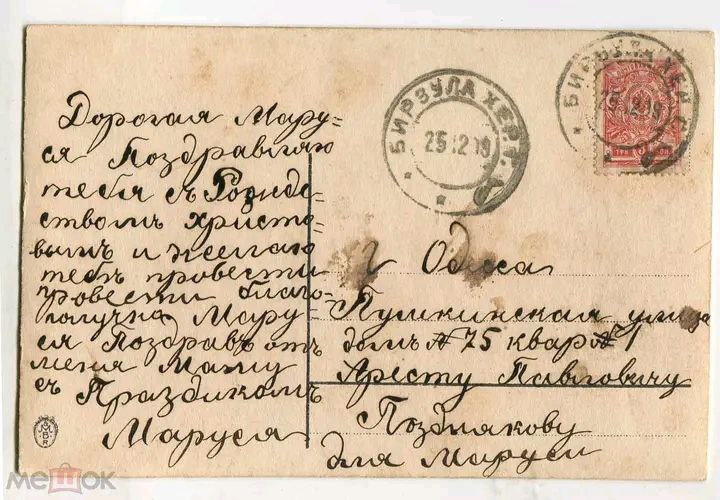 Дорогая Мару-
ся Поздравляю
тебя съ Рождe-
ствомъ христо-
вымъ и желаю
тебѣ провести
провести благо-
получна Мару-
ся Поздравь отъ
меня Машу
съ Праздикомъ
Маруся
БИРЗУЛА ХЕРС.
25 12 19
БИРЗУЛА ХЕРС.
25 12 19
г Одеса
Пушкинская улица
домъ № 75 квар № 1
Аресту Павловичу
Позднякову
для Маруси
мешок